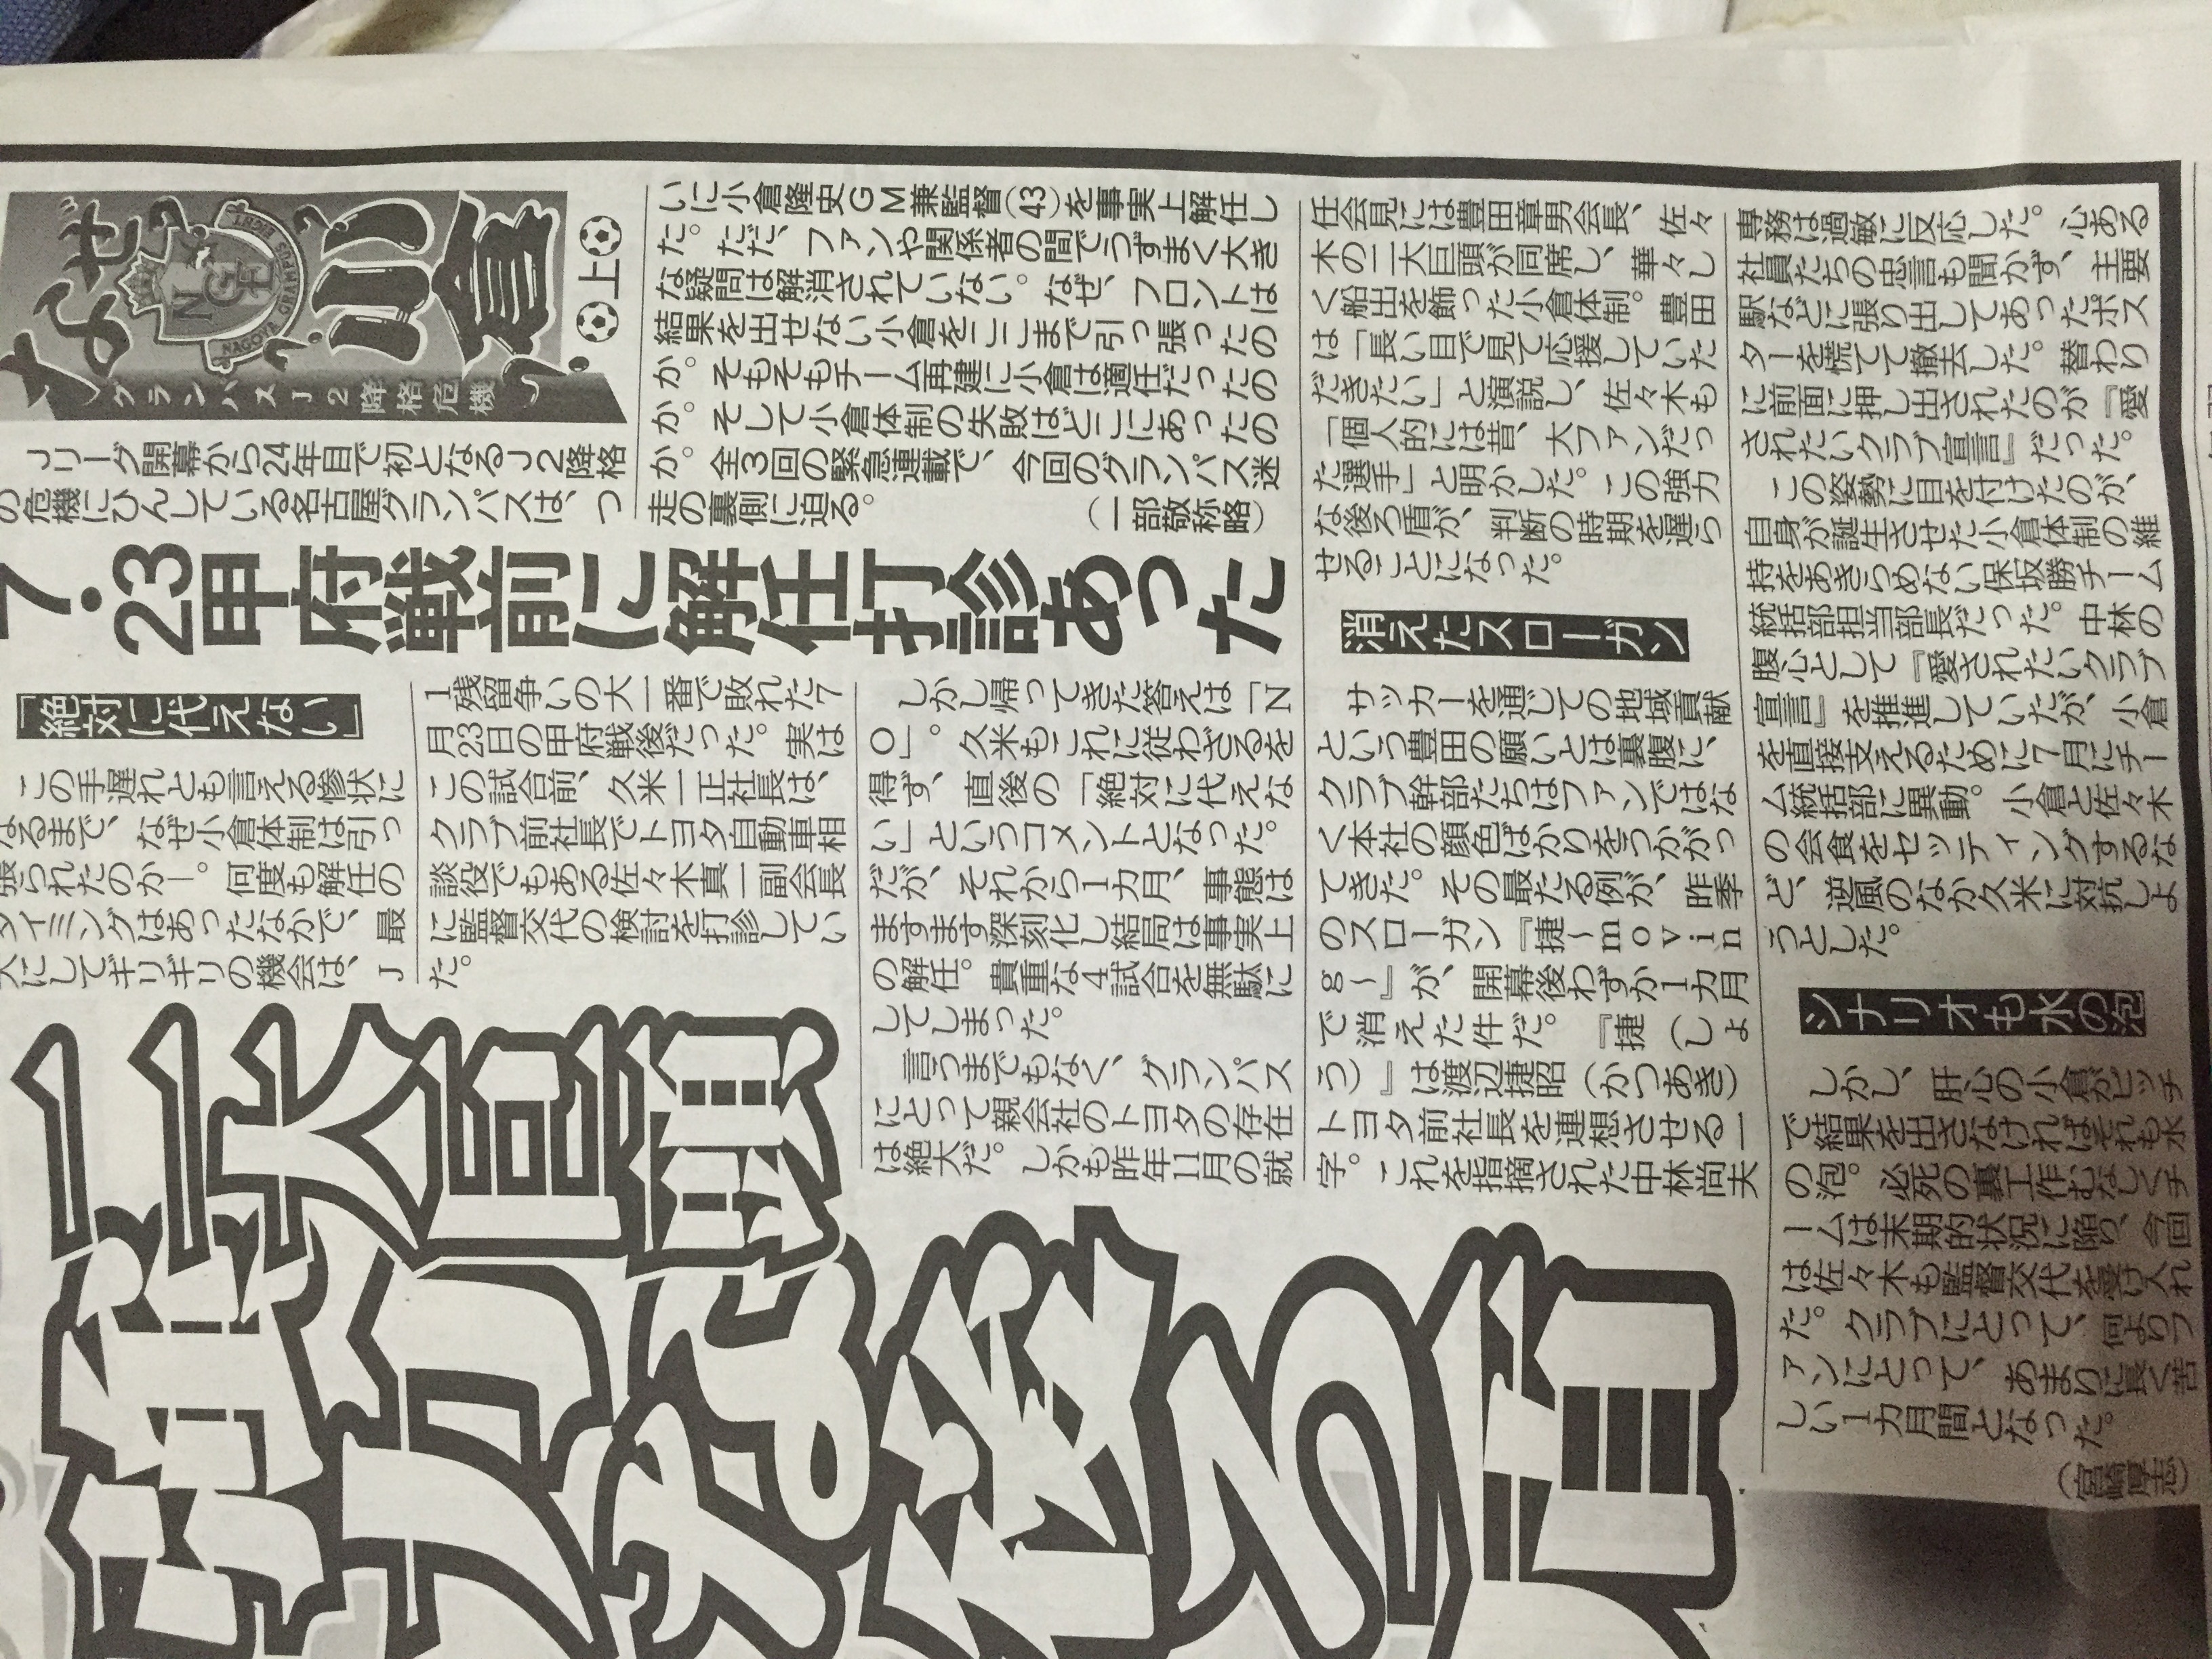 なぜ?小倉?
グランパスJ2降格危機
NAGOYA GRAMPUS EIGHT
上
Jリーグ開幕から24年目で初となるJ2降格
の危機にひんしている名古屋グランパスは、つ
いに小倉隆史GM兼監督(43)を事実上解任し
た。ただ、ファンや関係者の間でうずまく大き
な疑問は解消されていない。なぜ、フロントは
結果を出せない小倉をここまで引っ張ったの
か。そもそもチーム再建に小倉は適任だったの
か。そして小倉体制の失敗はどこにあったの
か。全3回の緊急連載で、今回のグランパス迷
走の裏側に迫る。
(一部敬称略)
7・23甲府戦前に解任打診あった
二大巨頭
強力な後ろ盾
「絶対に代えない」
この手遅れとも言える惨状に
なるまで、なぜ小倉体制は引っ
張られたのか―。何度も解任の
タイミングはあったなかで、最
大にしてギリギリの機会は、J
1残留争いの大一番で敗れた7
月23日の甲府戦後だった。実は
この試合前、久米一正社長は、
クラブ前社長でトヨタ自動車相
談役でもある佐々木真一副会長
に監督交代の検討を打診してい
た。
しかし帰ってきた答えは「N
O」。久米もこれに従わざるを
得ず、直後の「絶対に代えな
い」というコメントとなった。
だが、それから1カ月、事態は
ますます深刻化し結局は事実上
の解任。貴重な4試合を無駄に
してしまった。
言うまでもなく、グランパス
にとって親会社のトヨタの存在
は絶大だ。しかも昨年11月の就
任会見には豊田章男会長、佐々
木の二大巨頭が同席し、華々し
く船出を飾った小倉体制。豊田
は「長い目で見て応援していた
だきたい」と演説し、佐々木も
「個人的には昔、大ファンだっ
た選手」と明かした。この強力
な後ろ盾が、判断の時期を遅ら
せることになった。
消えたスローガン
サッカーを通じての地域貢献
という豊田の願いとは裏腹に、
クラブ幹部たちはファンではな
く本社の顔色ばかりをうかがっ
てきた。その最たる例が、昨季
のスローガン『捷〜movin
g〜』が、開幕後わずか1カ月
で消えた件だ。『捷(しょ
う)』は渡辺捷昭(かつあき)
トヨタ前社長を連想させる一
字。これを指摘された中林尚夫
専務は過敏に反応した。心ある
社員たちの忠言も聞かず、主要
駅などに張り出してあったポス
ターを慌てて撤去した。替わり
に前面に押し出されたのが『愛
されたいクラブ宣言』だった。
この姿勢に目を付けたのが、
自身が誕生させた小倉体制の維
持をあきらめない保坂勝チーム
統括部担当部長だった。中林の
腹心として『愛されたいクラブ
宣言』を推進していたが、小倉
を直接支えるために7月にチー
ム統括部に異動。小倉と佐々木
の会食をセッティングするな
ど、逆風のなか久米に対抗しよ
うとした。
シナリオも水の泡
しかし、肝心の小倉がピッチ
で結果を出さなければそれも水
の泡。必死の裏工作むなしくチ
ームは末期的状況に陥り、今回
は佐々木も監督交代を受け入れ
た。クラブにとって、何よりフ
ァンにとって、あまりに長く苦
しい1カ月間となった。
(宮崎厚志)